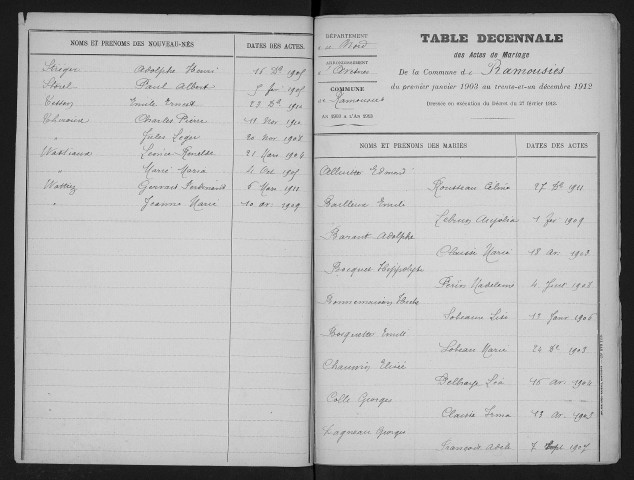 NOMS ET PRENOMS DES NOUVEAU-NÉS
DATES DES ACTES.
Adolphe Henri 16 Dbre 1905
Storel Paul Albert 5 fév 1905
Tesson Emile Ernest 22 Dbre 1910
Charles Pierre 11 Nov 1910
" Jules Léger 20 Nov 1908
Wattiaux 21 Mars 1904
" Marie Maria 4 Oct 1905
Wattiez Gervais Ferdinand 6 Mars 1911
" Jeanne Marie 10 av. 1909
DÉPARTEMENT
du Nord
ARRONDISSEMENT
d'Avesnes
COMMUNE
de Ramousies
AN 1903 A L'AN 1912
TABLE DECENNALE
des Actes de Mariage
De la Commune de Ramousies
du premier janvier 1903 au trente-et-un décembre 1912
Dressée en exécution du Décret du 27 février 1913.
NOMS ET PRENOMS DES MARIES
DATES DES ACTES
Edmond
Rousseau Célina 27 Dbre 1911
Bailleux Emile
Lebrun 1 fév 1909
Barant Adolphe
Classe Maria 18 Av. 1903
Bocquet Hippolyte
Périn Madeleine 4 Juil 1908
Lobeau 13 Janv 1906
Emile
Lobeau Marie 24 Dbre 1903
Chauvin Elisée
Delhaye Léa 16 av. 1904
Colli Georges
Classe Irma 13 Av. 1903
Dagneau Georges
François Adèle 7 Sept 1907